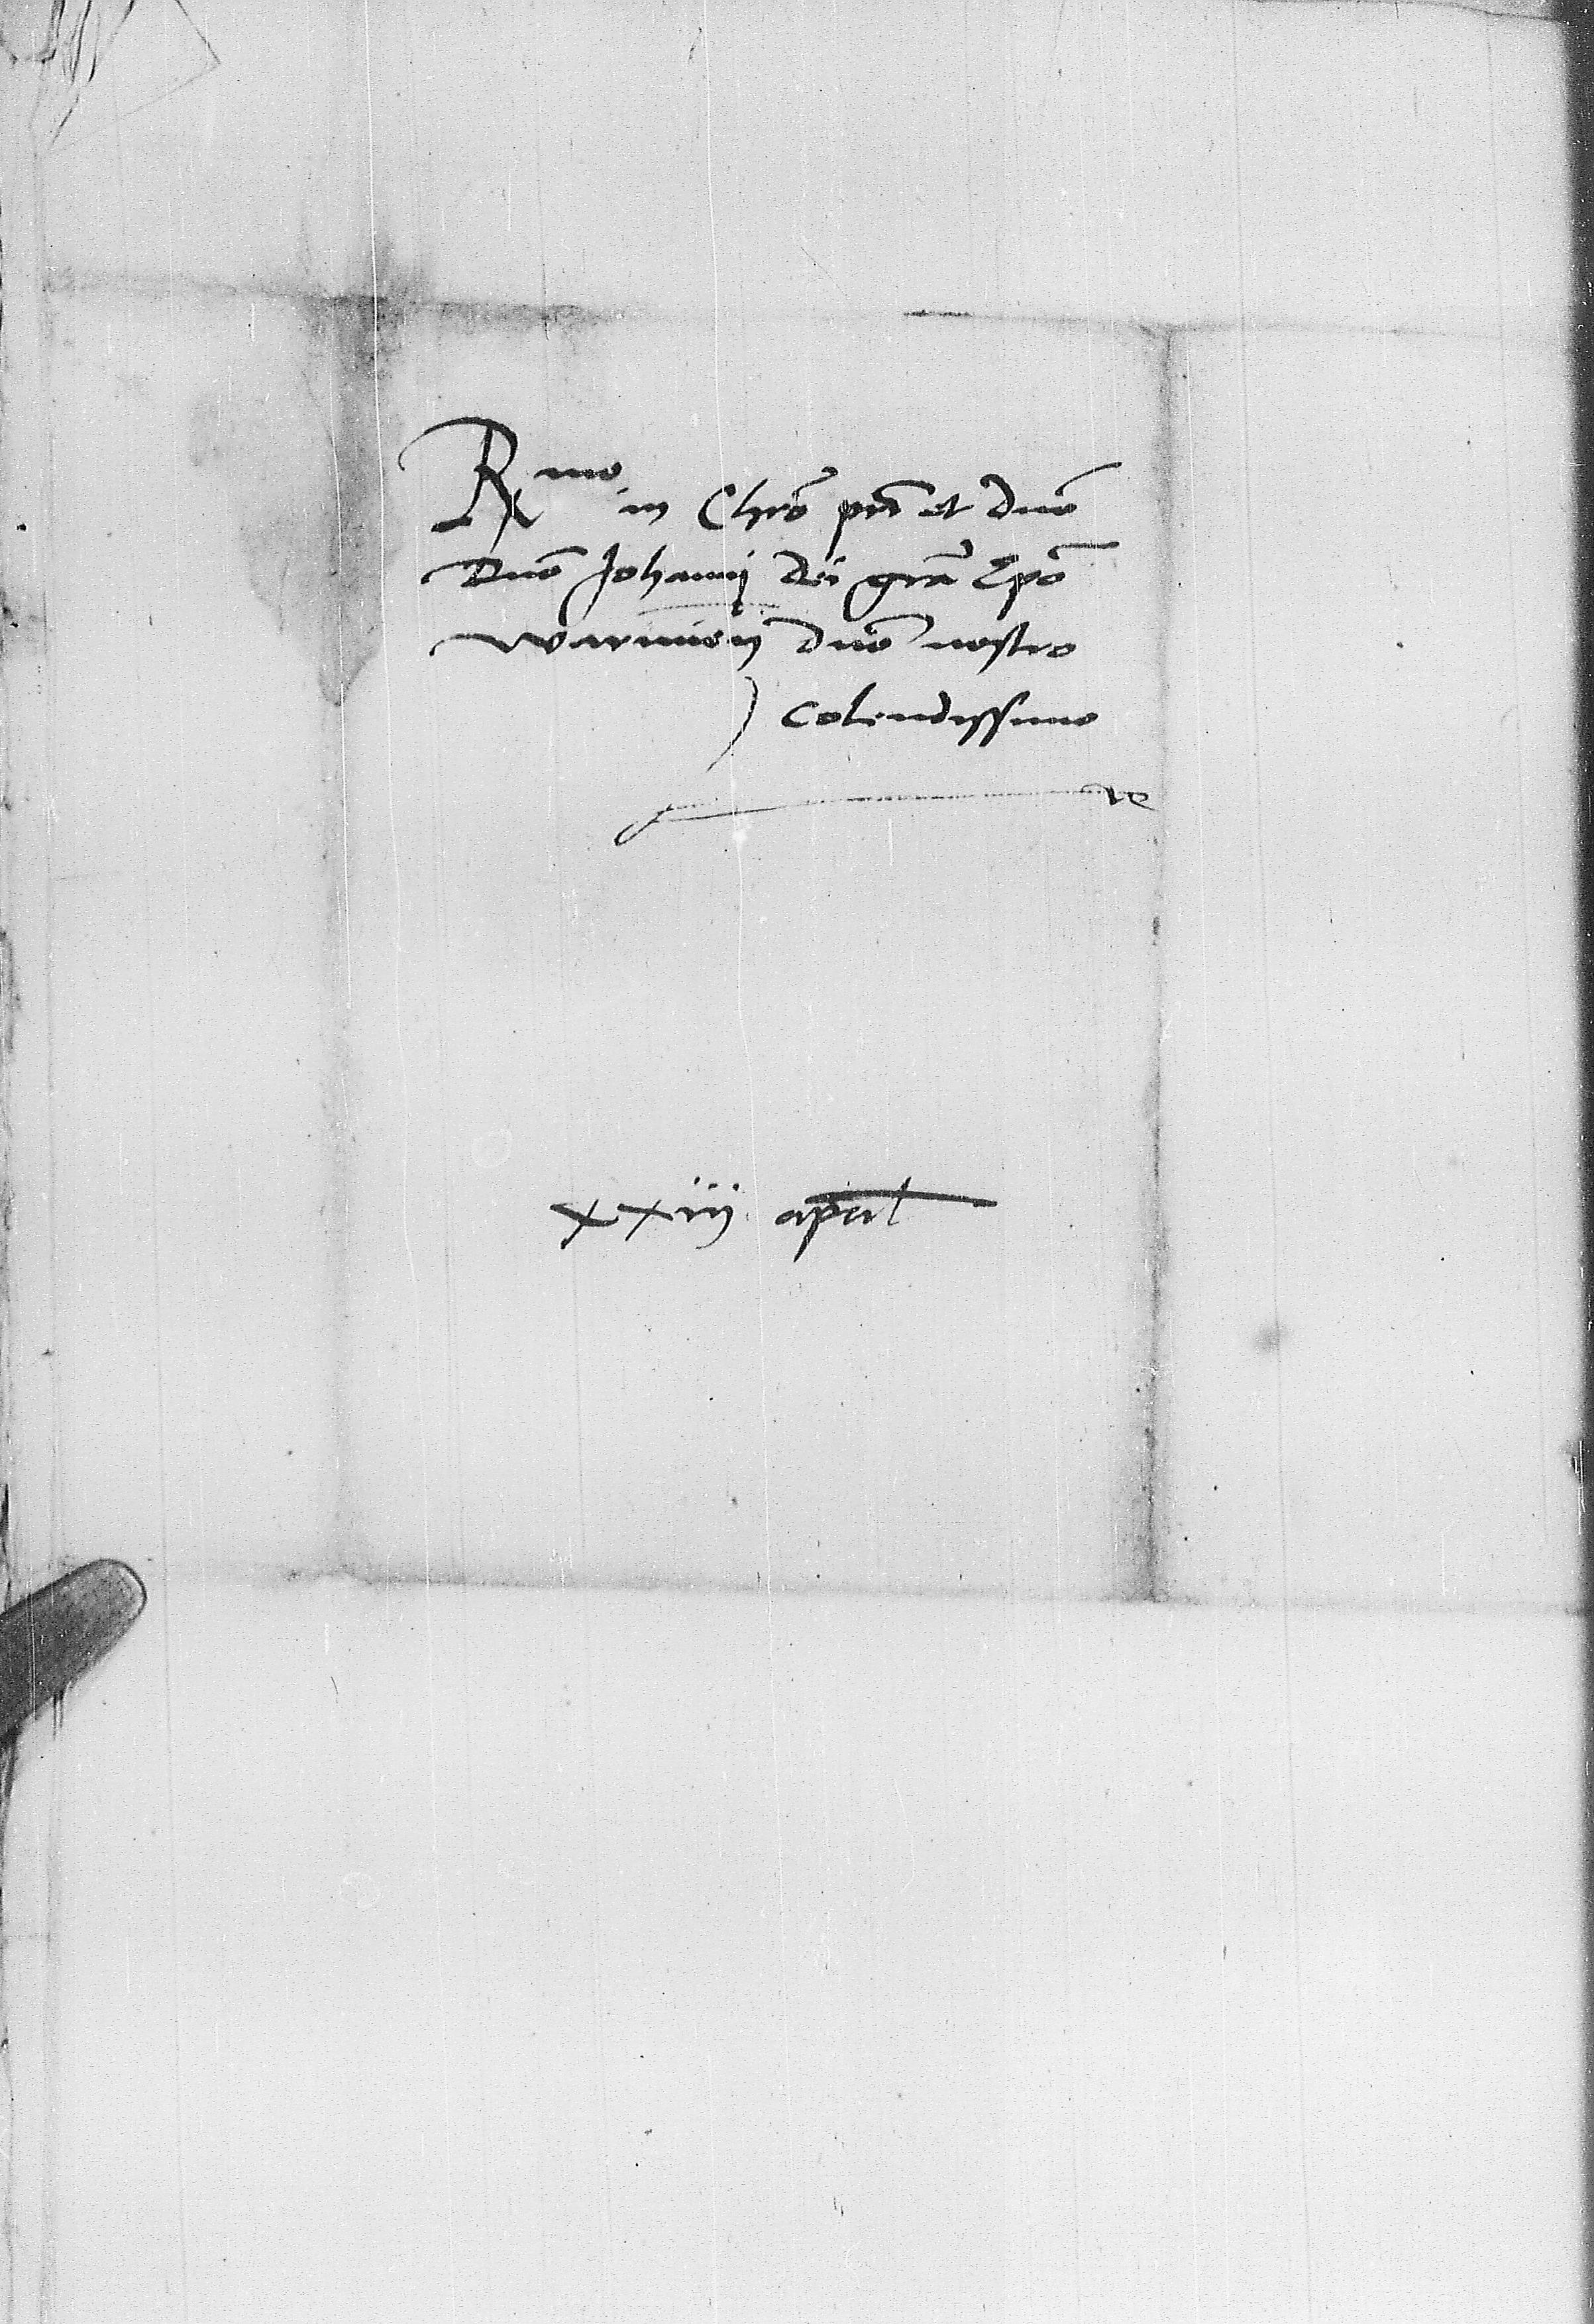 R^mo in Chr̄o pr̄i et dn̄o
Dn̄o Johanni dei gr̄a Ep̄o
Warmien̄ dn̄o nostro
colendissimo
xxiij april